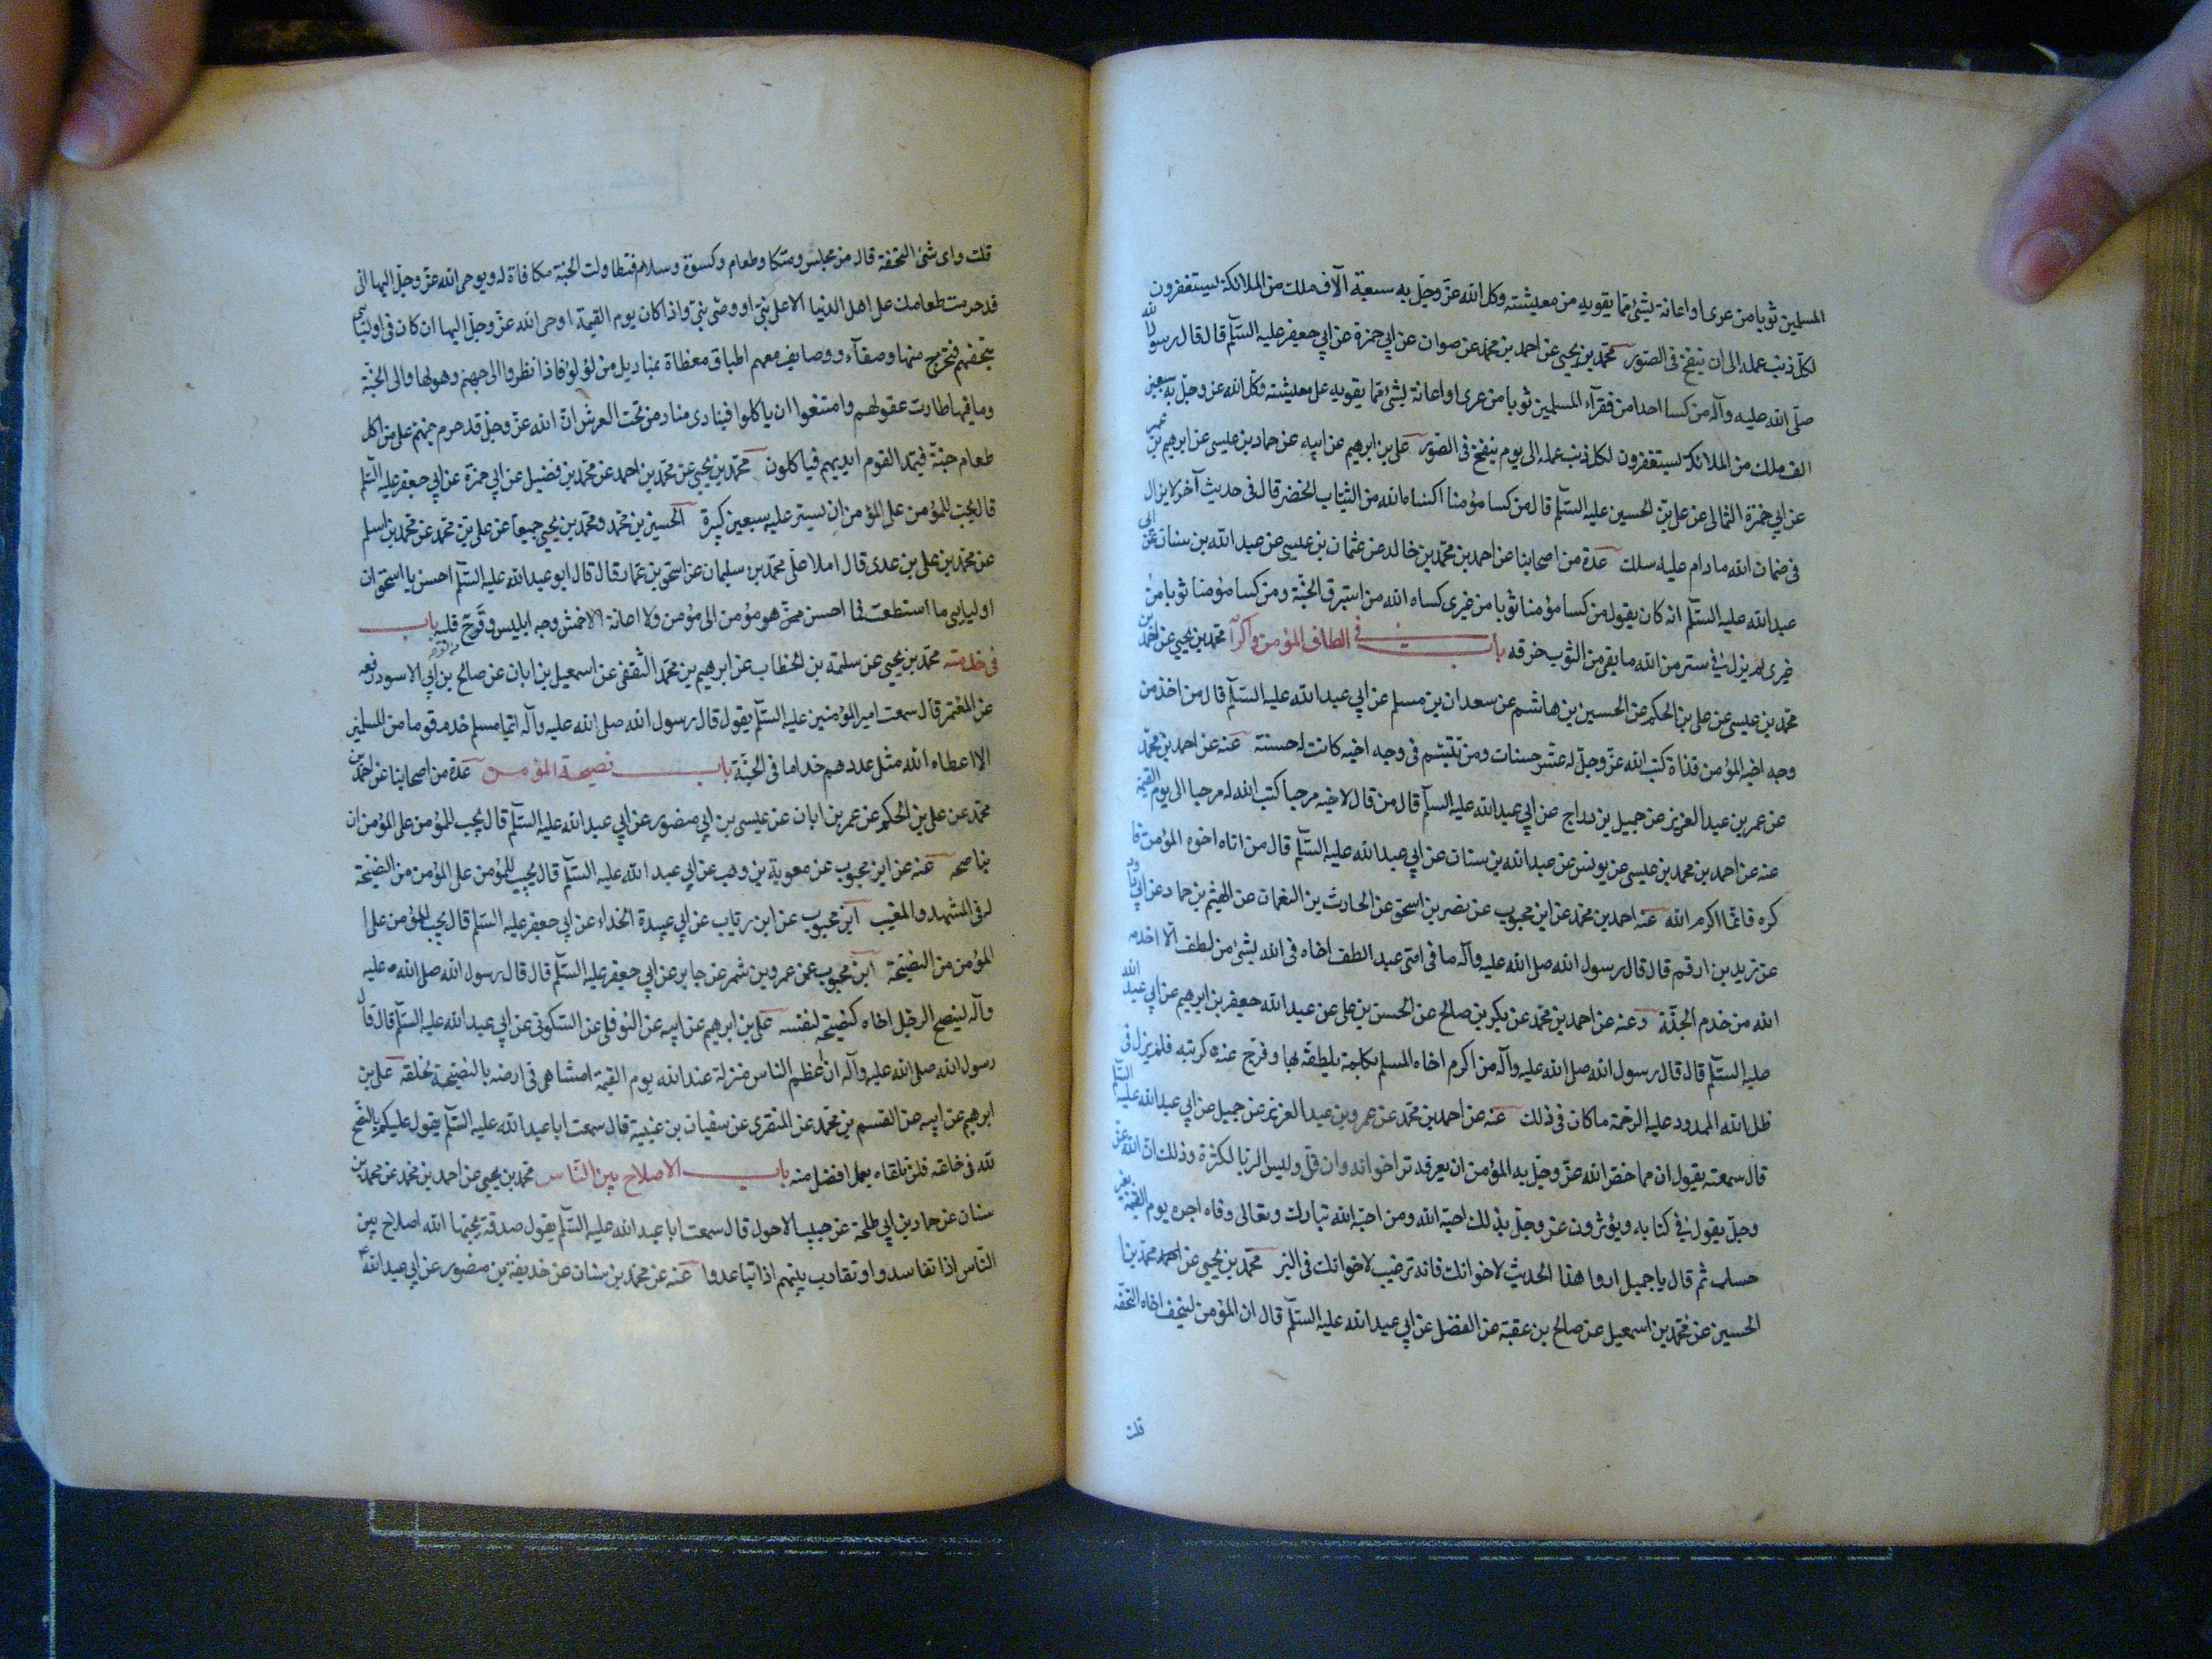 المسلمين ثوبا من عرى او اعانة بشئ مما يقويه من معيشته وكل الله عز وجل به سبعة آلاف ملك من الملائكة يستغفرون
لكل ذنب عمله الى ان ينفخ في الصور محمد بن يحيى عن احمد بن محمد عن صوان عن ابي حمزة عن ابي جعفر عليه السلم قال قال رسول الله
صلى الله عليه وآله من كسا احدا من فقرآء المسلمين ثوبا من عرى او اعانة بشئ مما يقويه على معيشته وكل الله عز وجل به سبعين
الف ملك من الملائكة يستغفرون لكل ذنب عمله الى يوم ينفخ في الصور على بن ابرهيم عن ابيه عن حماد بن عيسى عن ابرهيم بن عمر
عن ابي حمزة الثمالى عن على بن الحسين عليه السلم قال من كسا مؤمنا اكساه الله من الثياب الخضر قال في حديث آخر لا يزال
في ضمان الله ما دام عليه سلك عدة من اصحابنا عن احمد بن محمد بن خالد عن عثمان بن عيسى عن عبد الله بن سنان عن ابي
عبد الله عليه السلم انه كان يقول من كسا مؤمنا ثوبا من غرى كساه الله من استبرق الجنة ومن كسا مؤمنا ثوبا من
غرى لم يزل في ستر من الله ما بقى من الثوب خرقه باب في الطاف المؤمن واكرا محمد بن يحيى عن احمد بن
محمد بن عيسى عن على بن الحكم عن الحسين بن هاشم عن سعدان بن مسلم عن ابي عبد الله عليه السلم قال من اخذ من
وجه اخيه المؤمن قذاة كتب الله عز وجل له عشر حسنات ومن تبسم في وجه اخيه كانت له حسنة عنه عن احمد بن محمد
عن عمر بن عبد العزيز عن جميل بن دراج عن ابي عبد الله عليه السلم قال من قال لاخيه مرحبا كتب الله له مرحبا الى يوم القيمة
عنه عن احمد بن محمد بن عيسى عن يونس عن عبد الله بن سنان عن ابي عبد الله عليه السلم قال من اتاه اخوه المؤمن فا
كره فانما اكرم الله عنه احمد بن محمد عن ابن محبوب عن نصر بن اسحق عن الحارث بن النعمان عن الهيثم بن حماد عن ابي داود
عن زيد بن ارقم قال قال رسول الله صلى الله عليه وآله ما في امتى عبد الطف اخاه في الله بشئ من لطف الا اخدمه
الله من خدم الجنة وعنه عن احمد بن محمد عن بكر بن صالح عن الحسن بن على عن عبد الله جعفر بن ابرهيم عن ابي عبد الله
عليه السلم قال قال رسول الله صلى الله عليه وآله من اكرم اخاه المسلم بكلمة يلطفه بها وفرج عنه كربته فلم يزل في
ظل الله الممدود عليه الرحمة ما كان في ذلك عنه عن احمد بن محمد عن عمر بن عبد العزيز عن جميل عن ابي عبد الله عليه السلم
قال سمعته يقول ان مما خص الله عز وجل به المؤمن ان يعرفه بر اخوانه وان قل وليس البر بالكثرة وذلك ان الله عز
وجل يقول في كتابه ويؤثرون عز وجل بذلك احبه الله ومن احبه الله تبارك وتعالى وفاه اجره يوم القيمة بغير
حساب ثم قال يا جميل اروا هذا الحديث لاخوانك فانه ترغيب لاخوانك في البر محمد بن يحيى عن احمد محمد بن
الحسين عن محمد بن اسمعيل عن صالح بن عقبة عن الفضل عن ابي عبد الله عليه السلم قال ان المؤمن ليتحف اخاه التحفه
قلت
قلت واى شئ التحفة قال من مجلس ومتكا وطعام وكسوة وسلام فتطاولت الجنة مكافاة له ويوحى الله عز وجل اليها انى
قد حرمت طعامك على اهل الدنيا الا على نبى او وصى نبى واذا كان يوم القيمة اوحى الله عز وجل اليها ان كافى اوليائى
بتحفهم فتخرج منها وصفآء ووصايف معهم اطباق مغطاة بمناديل من لؤلؤ فاذا نظروا الى جهنم وهولها والى الجنة
وما فيها طارت عقولهم وامتنعوا ان ياكلوا فينادى مناد من تحت العرش ان الله عز وجل قد حرم جهنم على من اكل
طعام جنة فيمد القوم ايديهم فياكلون محمد بن يحيى عن محمد بن احمد عن محمد بن فضيل عن ابي حمزة عن ابي جعفر عليه السلم
قال يجب للمؤمن على المؤمن ان يستر عليه سبعين كبيرة الحسين بن محمد ومحمد بن يحيى جميعا عن على بن محمد عن محمد بن اسلم
عن محمد بن على بن عدى قال املا على محمد بن سليمان عن اسحق بن عمار قال قال ابو عبد الله عليه السلم احسن يا اسحق الى
اوليايى ما استطعت فما احسن مؤمن الى مؤمن ولا اعانة الا خمش وجه ابليس وقرح قلبه باب
في خدمته محمد بن يحيى عن سلمة بن الخطاب عن ابرهيم بن محمد الثقفى عن اسمعيل بن ابان عن صالح بن ابي الاسود رفعه
عن المعتمر قال سمعت امير المؤمنين عليه السلم يقول قال رسول الله صلى الله عليه وآله ايما مسلم خدم قوما من المسلمين
الا اعطاه الله مثل عددهم خداما في الجنة باب نصيحة المؤمن عدة من اصحابنا عن احمد بن
محمد عن على بن الحكم عن عمر بن ابان عن عيسى بن ابي منصور عن ابي عبد الله عليه السلم قال يجب للمؤمن على المؤمن ان
يناصحه عنه عن ابن محبوب عن معوية بن وهب عن ابي عبد الله عليه السلم قال يجب للمؤمن على المؤمن من النصيحة
له في المشهد والمغيب ابن محبوب عن ابن رئاب عن ابي عبيدة الحذاء عن ابي جعفر عليه السلم قال يجب للمؤمن على
المؤمن من النصيحة ابن محبوب عن عمرو بن شمر عن جابر عن ابي جعفر عليه السلم قال قال رسول الله صلى الله عليه
وآله لينصح الرجل اخاه كنصيحته لنفسه على بن ابرهيم عن ابيه عن النوفلى عن السكونى عن ابي عبد الله عليه السلم قال قال
رسول الله صلى الله عليه وآله ان اعظم الناس منزلة عند الله يوم القيمة امشاهم في ارضه بالنصيحة لخلقه على بن
ابرهيم عن ابيه عن القسم بن محمد عن المنقرى عن سفيان بن عيينة قال سمعت ابا عبد الله عليه السلم يقول عليكم بالنصح
لله في خلقه فلن تلقاه بعمل افضل منه باب الاصلاح بين الناس محمد بن يحيى عن احمد بن محمد عن محمد بن
سنان عن حماد بن ابي طلحة عن حبيب الاحول قال سمعت ابا عبد الله عليه السلم يقول صدقة يحبها الله اصلاح بين
الناس اذا تفاسدوا وتقارب بينهم اذا تباعدوا عنه عن محمد بن سنان عن حذيفة بن منصور عن ابي عبد الله